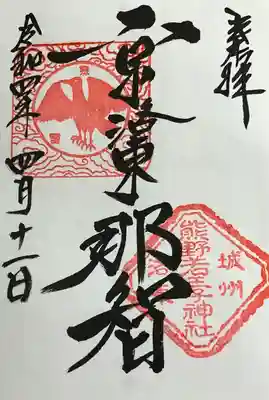 奉拝
京洛東那智
令和四年四月十一日
城州
熊野若王子神社